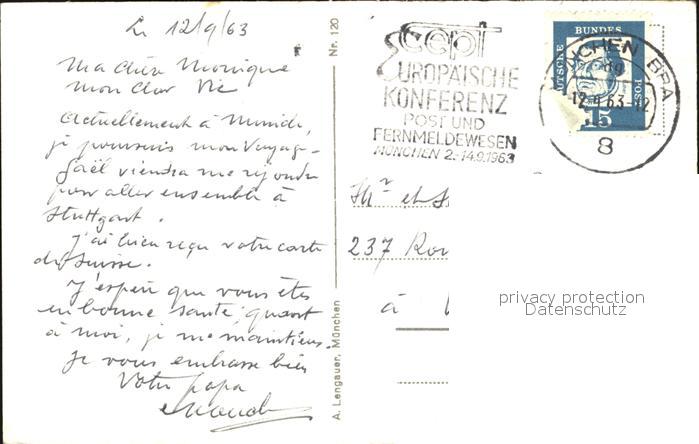 Le 12/9/63
Ma chère Monique
Mon cher Vic
Actuellement à Munich,
je poursuis mon voyage.
Gaël viendra me rejoindre
pour aller ensemble à
Stuttgart.
J'ai bien reçu votre carte
de Suisse.
J'espère que vous êtes
en bonne santé, quant
à moi, je me maintiens.
Je vous embrasse bien
Votre papa
Nr. 120
A. Lengauer, München
cept
EUROPÄISCHE
KONFERENZ
POST UND
FERNMELDEWESEN
MÜNCHEN 2.-14.9.1963
DEUTSCHE BUNDESPOST
15
MÜNCHEN BPA
12.9.63-12
8
Mr et
237
à
privacy protection
Datenschutz